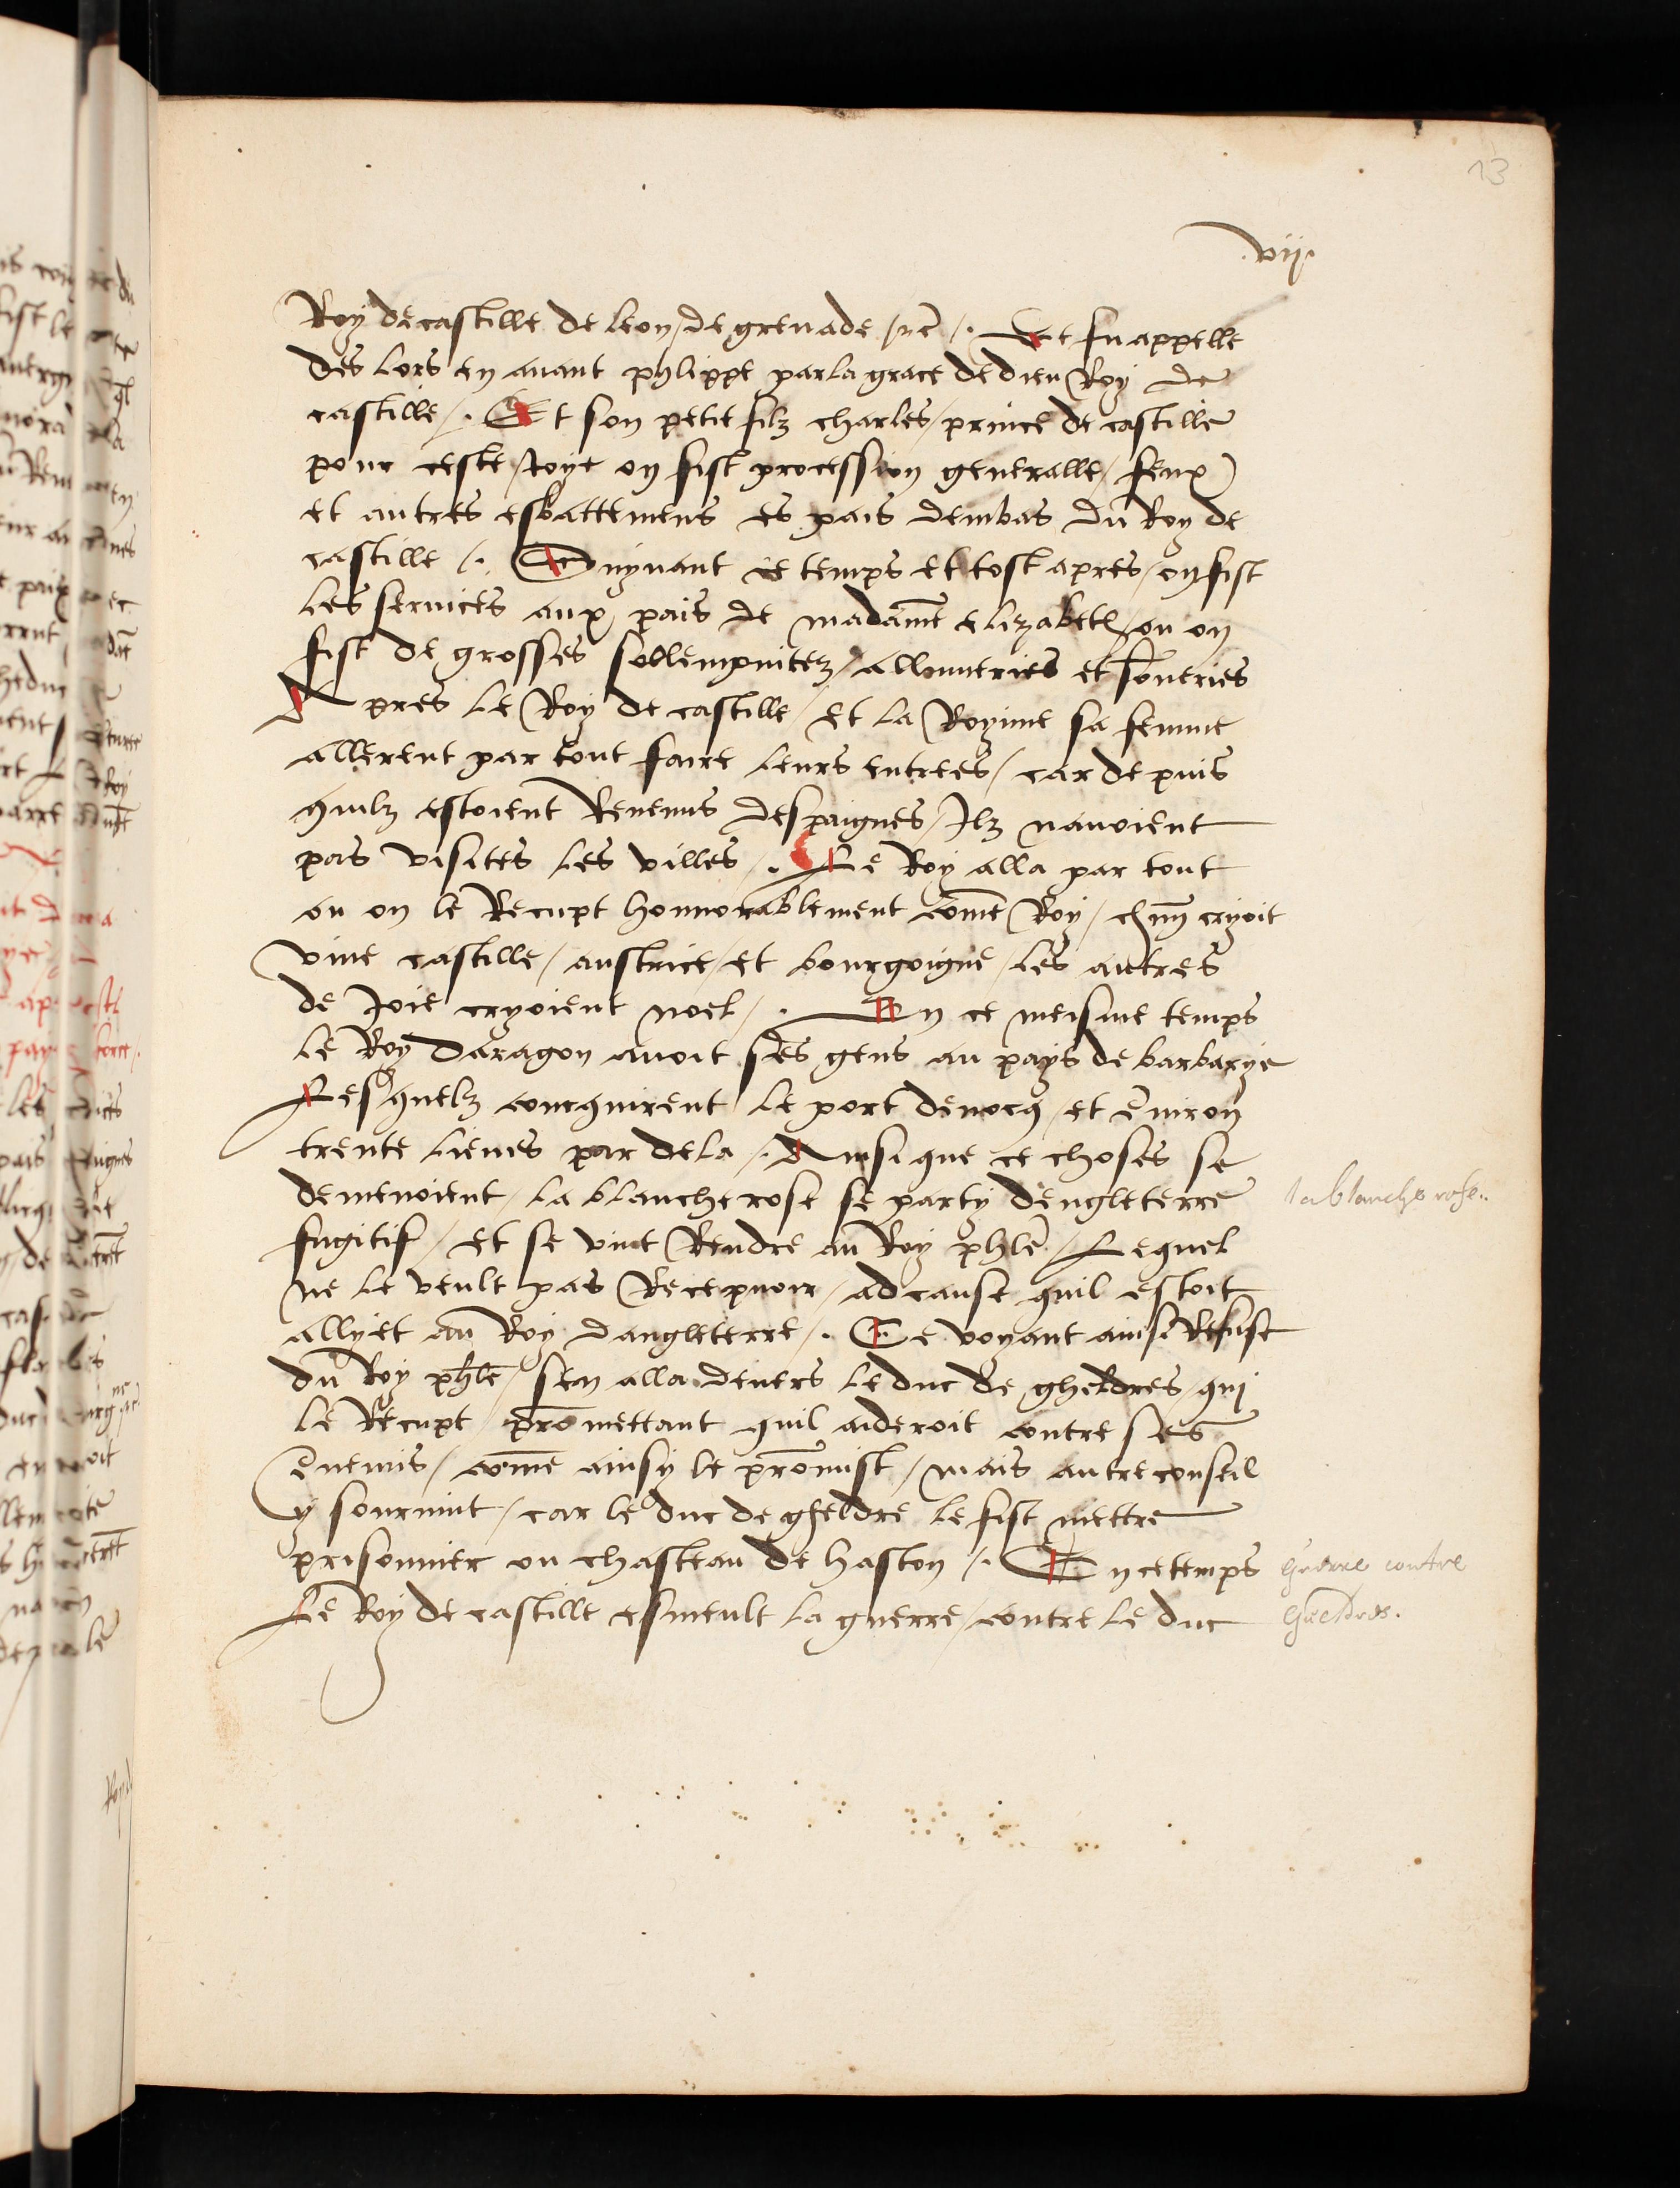 13
.vij.
Roy de castille de leon / de grenade / zc̄ /. Et fu appelle
des lors en auant phlippe par la grace de dieu Roy de
castille /. Et son petit filz charles / prince de castille
pour ceste / Joye on fist procession generalle / feux
et autres esbattemens es pais dembas du Roy de
castille /. Suyuant ce temps et tost apres / on fist
les seruices aux pais de madame elizabeth / ou on
fist de grosses sollempnitez / allumeries et soneries
Apres le Roy de castille / et la Royine sa femme
allerent par tout faire leurs entrees / car depuis
quilz estoient Reuenus despaignes / Ilz nauoient
pas visites les villes /. Le Roy alla par tout
ou on le Recupt honnorablement com̄e Roy / ch̄un cryoit
viue castille / austrice / et bourgoigne / les autres
de Joie cryoient noel /. En ce meisme temps
le Roy daragon auoit ses gens au pays de barbarye
Lesquelz concquirent le port denocq / et ēuiron
trente lieues par dela /. Ainsi que ce choses se
demenoient / la blanche rose se party dengleterre
fugitif / et se vint Rendre au Roy phl̄e / Lequel
ne le veult pas Recepuoir / ad cause quil estoit
allyet au Roy dangleterre /. Ce voyant ainsi Refuse
du Roy phl̄e / sen alla deuers le duc de gheldres / qui
le Recupt / promettant quil aideroit contre ses
ēnemis / com̄e ainsy le promist / mais autre conseil
y souruint / car le duc de gheldre le fist mettre
prisonnier ou chasteau de haston /. En ce temps
Le Roy de castille esmeult la guerre / contre le duc
la blanche rose..
Guerre contre
Gueldres.